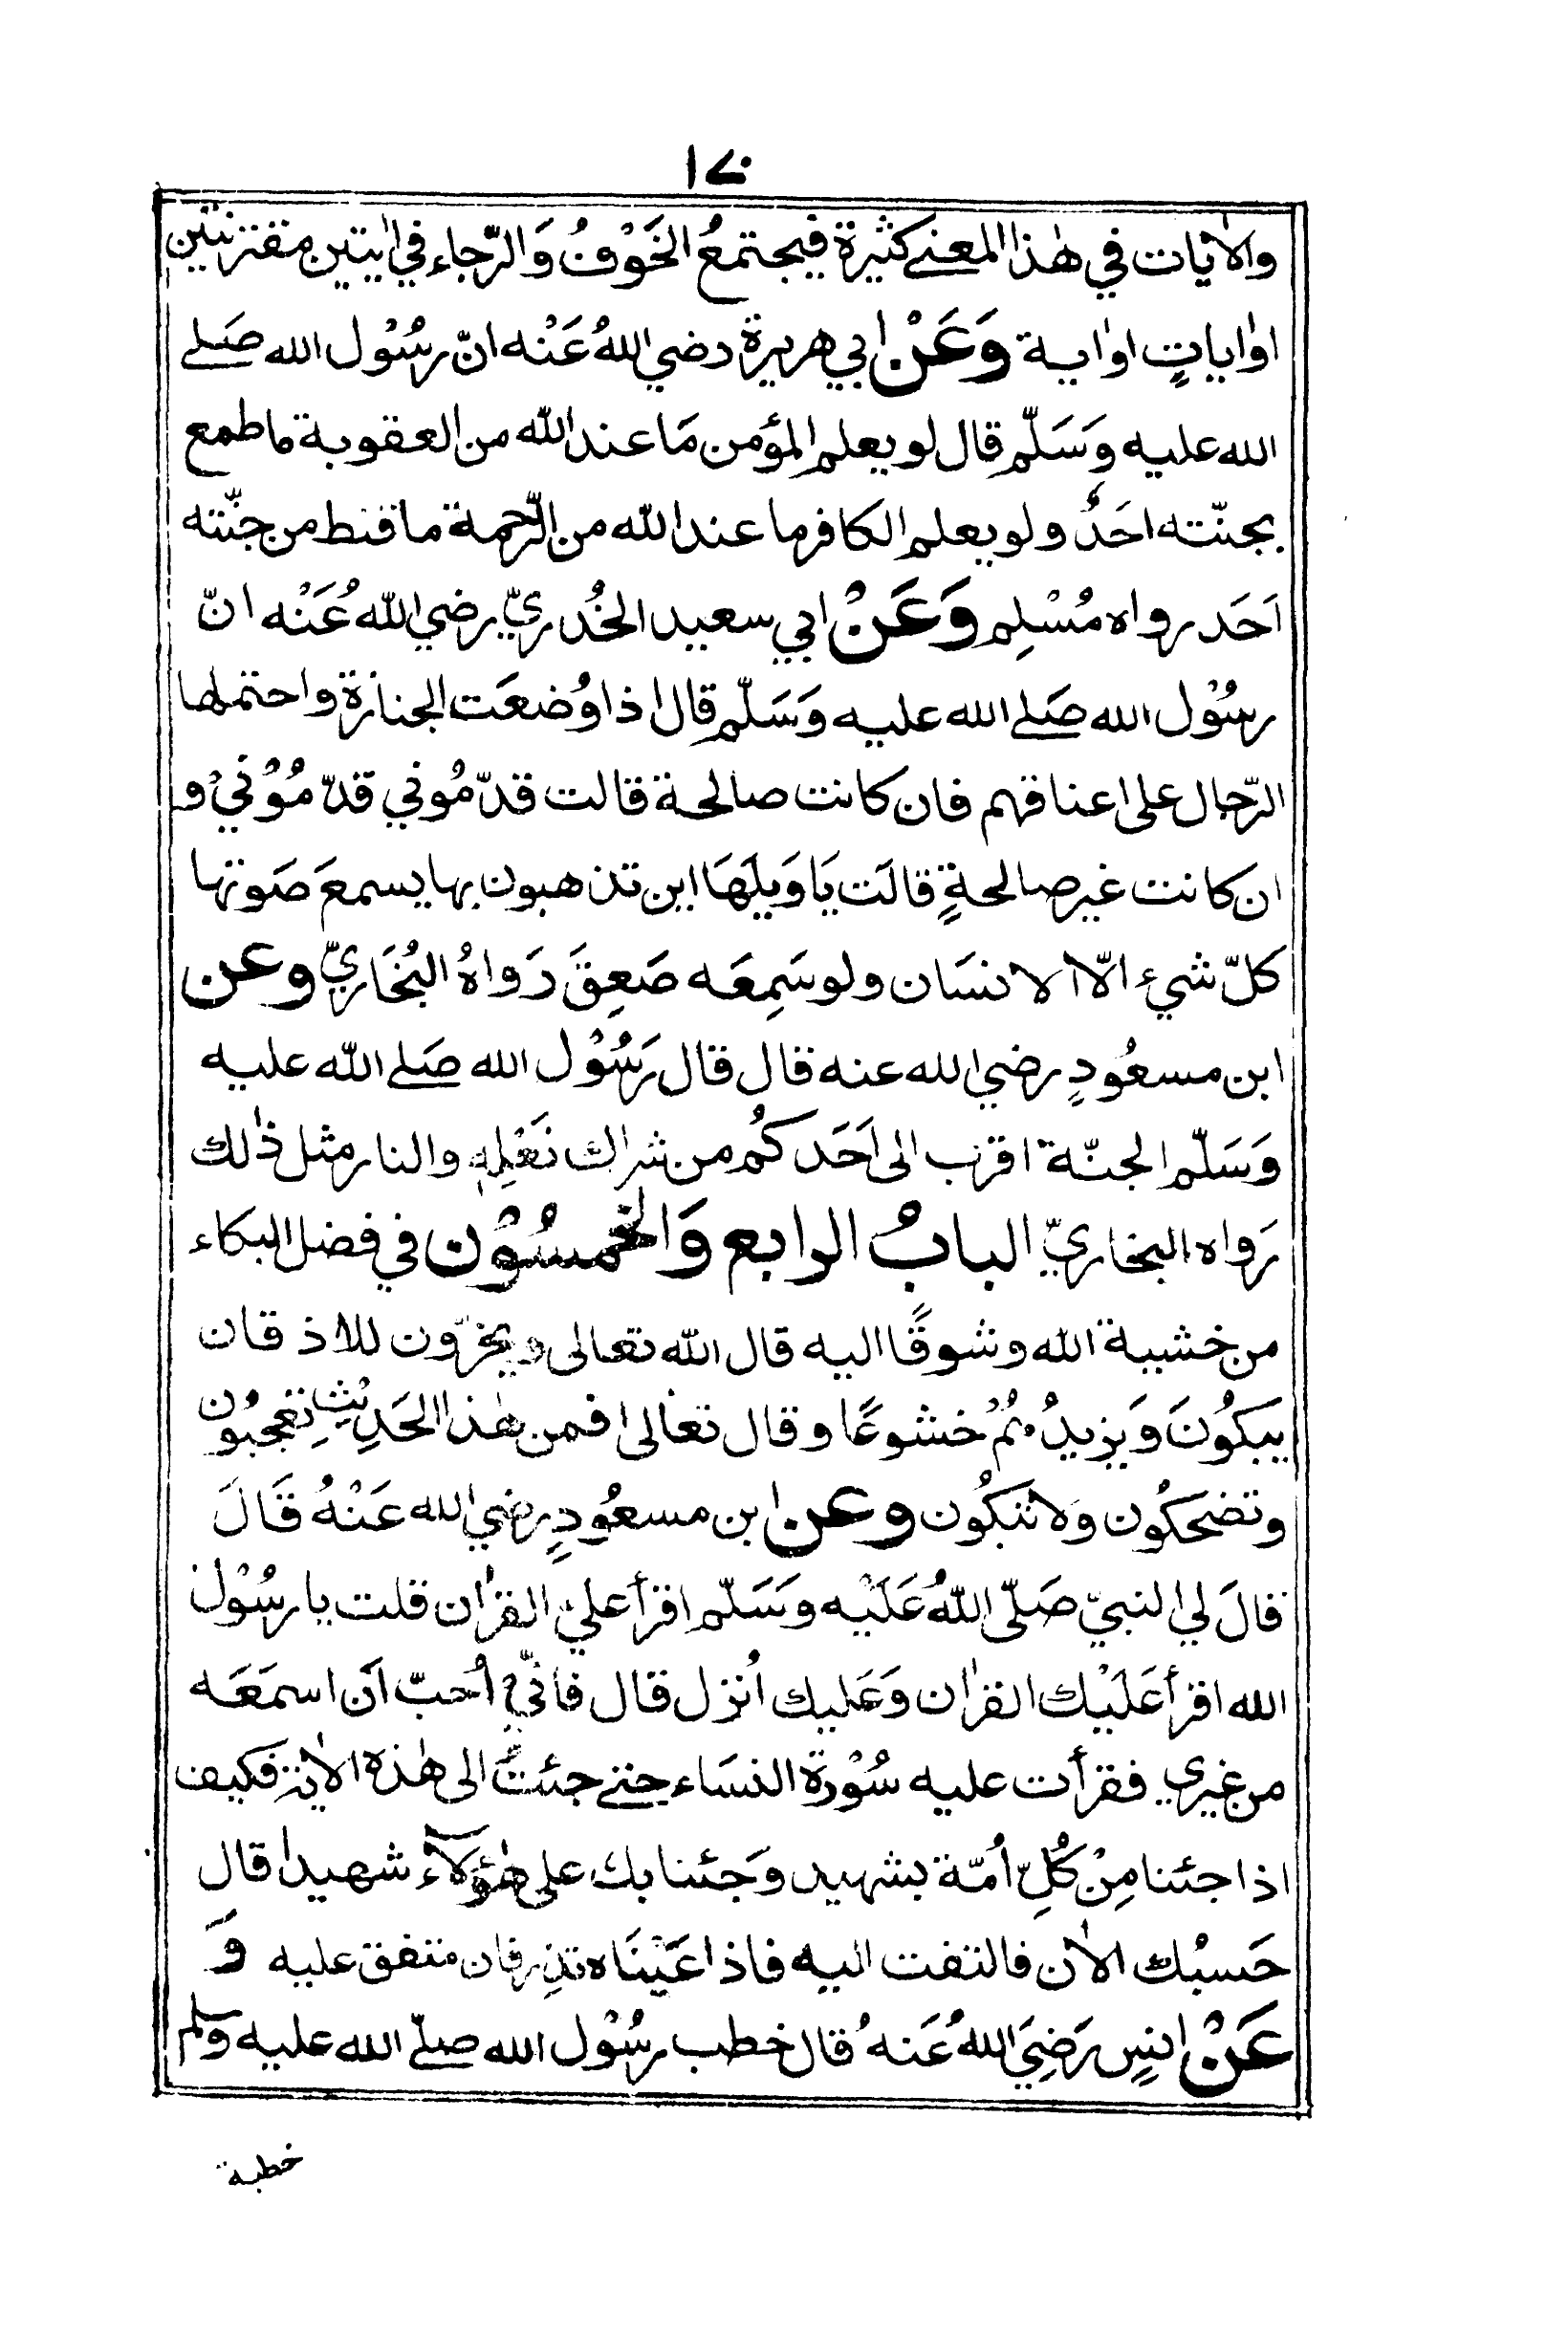 ١٧٠
والاٰيات في هٰذا المعنى كثيرة فيجتمعُ الخَوْفُ وَالرّجاء في اٰيتين مقترنتين
اواٰياتٍ اواٰية وَعَنْ ابي هريرة رضي اللهُ عَنْه انّ رسُوْل الله صَلى
الله عليه وَسَلّم قال لو يعلم المؤمن مَا عند الله من العقوبة ما طمع
بجنّته احَدٌ ولو يعلم الكافر ما عند الله من الرّحمة ما قنط من جنّته
اَحَد رواه مُسْلِم وَعَنْ ابي سعيد الخُدريّ رضي اللّه عَنْه انّ
رسُوْل الله صَلى الله عليه وَسَلّم قال اذا وُضعَت الجنازة واحتملها
الرّجال على اعناقهم فان كانت صالحة قالت قدّمُوني قدّمُوْنيْ و
ان كانت غير صالحةٍ قالَت يَا وَيلَهَا اين تذهبون بها يسمعَ صَوتها
كلّ شيء الّا الانسَان ولو سَمِعَه صَعِقَ رَواهُ البُخَاريّ وعن
ابن مسعُودٍ رضي الله عنه قال قال رَسُوْل الله صَلى اللّه عليه
وَسَلّم الجنّة اقرب الى اَحَدكُم من شراك نَعْلِهٖ والنار مثل ذٰلك
رَواه البخاريّ البابُ الرابع وَالخمسُوْن في فضل البكاء
من خشية اللّه وشوقًا اليه قال اللّه تعالى ويخرّون للاذقان
يبكُونَ وَيزيدُهُمْ خشوعًا وقال تعَالى افمن هٰذا الحَدِيْثِ تعجبُون
وتضحَكُون وَلا تبكُون وعن ابن مسعُودٍ رضي الله عَنْهُ قَالَ
قالَ لي النبيّ صَلّى اللّهُ عَلَيْه وسَلّم اقرأ عليّ القراٰن قلت يا رسُوْل
الله اقرأ عَلَيْك القراٰن وَعَليك اُنزل قال فانّي اُحبّ اَن اسمَعَه
من غيري فقرأت عليه سُوْرة النسَاء حتى جئتُ الى هٰذه الاٰية فكيف
اذا جئنا مِنْ كُلِّ اُمّة بشهيد وَجئنا بك على هٰؤلَاء شهيدا قال
حَسبُك الاٰن فالتفت اليه فاذا عَيْنَاه تذرفان متفق عليه وَ
عَنْ انسٍ رَضِيَ اللهُ عَنهُ قال خطب رسُوْل الله صلّى الله عليه وسلم
خطبة